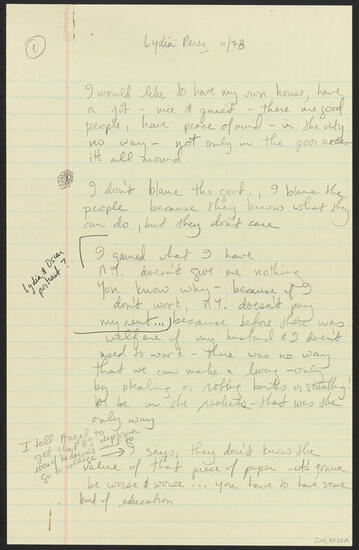 1
Lydia Perez 11/78
I would like to have my own house, have
a job - nice & quiet - there are good
people, have peace of mind - in the city
no way - not only in the poor areas
it's all around
I don't blame the gov't., I blame the
people because they know what they
can do, but they don't care
Lydia & Oscar
portrait?
I gained what I have
N.Y. doesn't give me nothing
You know why - because if I
don't work, N.Y. doesn't pay
my rent... because before there was
welfare if my husband & I doesn't
used to work - there was no way
that we can make a living - only
by stealing or robbing banks or something
to be in the rackets - that was the
only way
I tell Angel to
get that HS diploma
even if he doesn't want to
go to college
I says, they don't know the
value of that piece of paper - it's gonna
be worse & worse ... you have to have some
kind of education